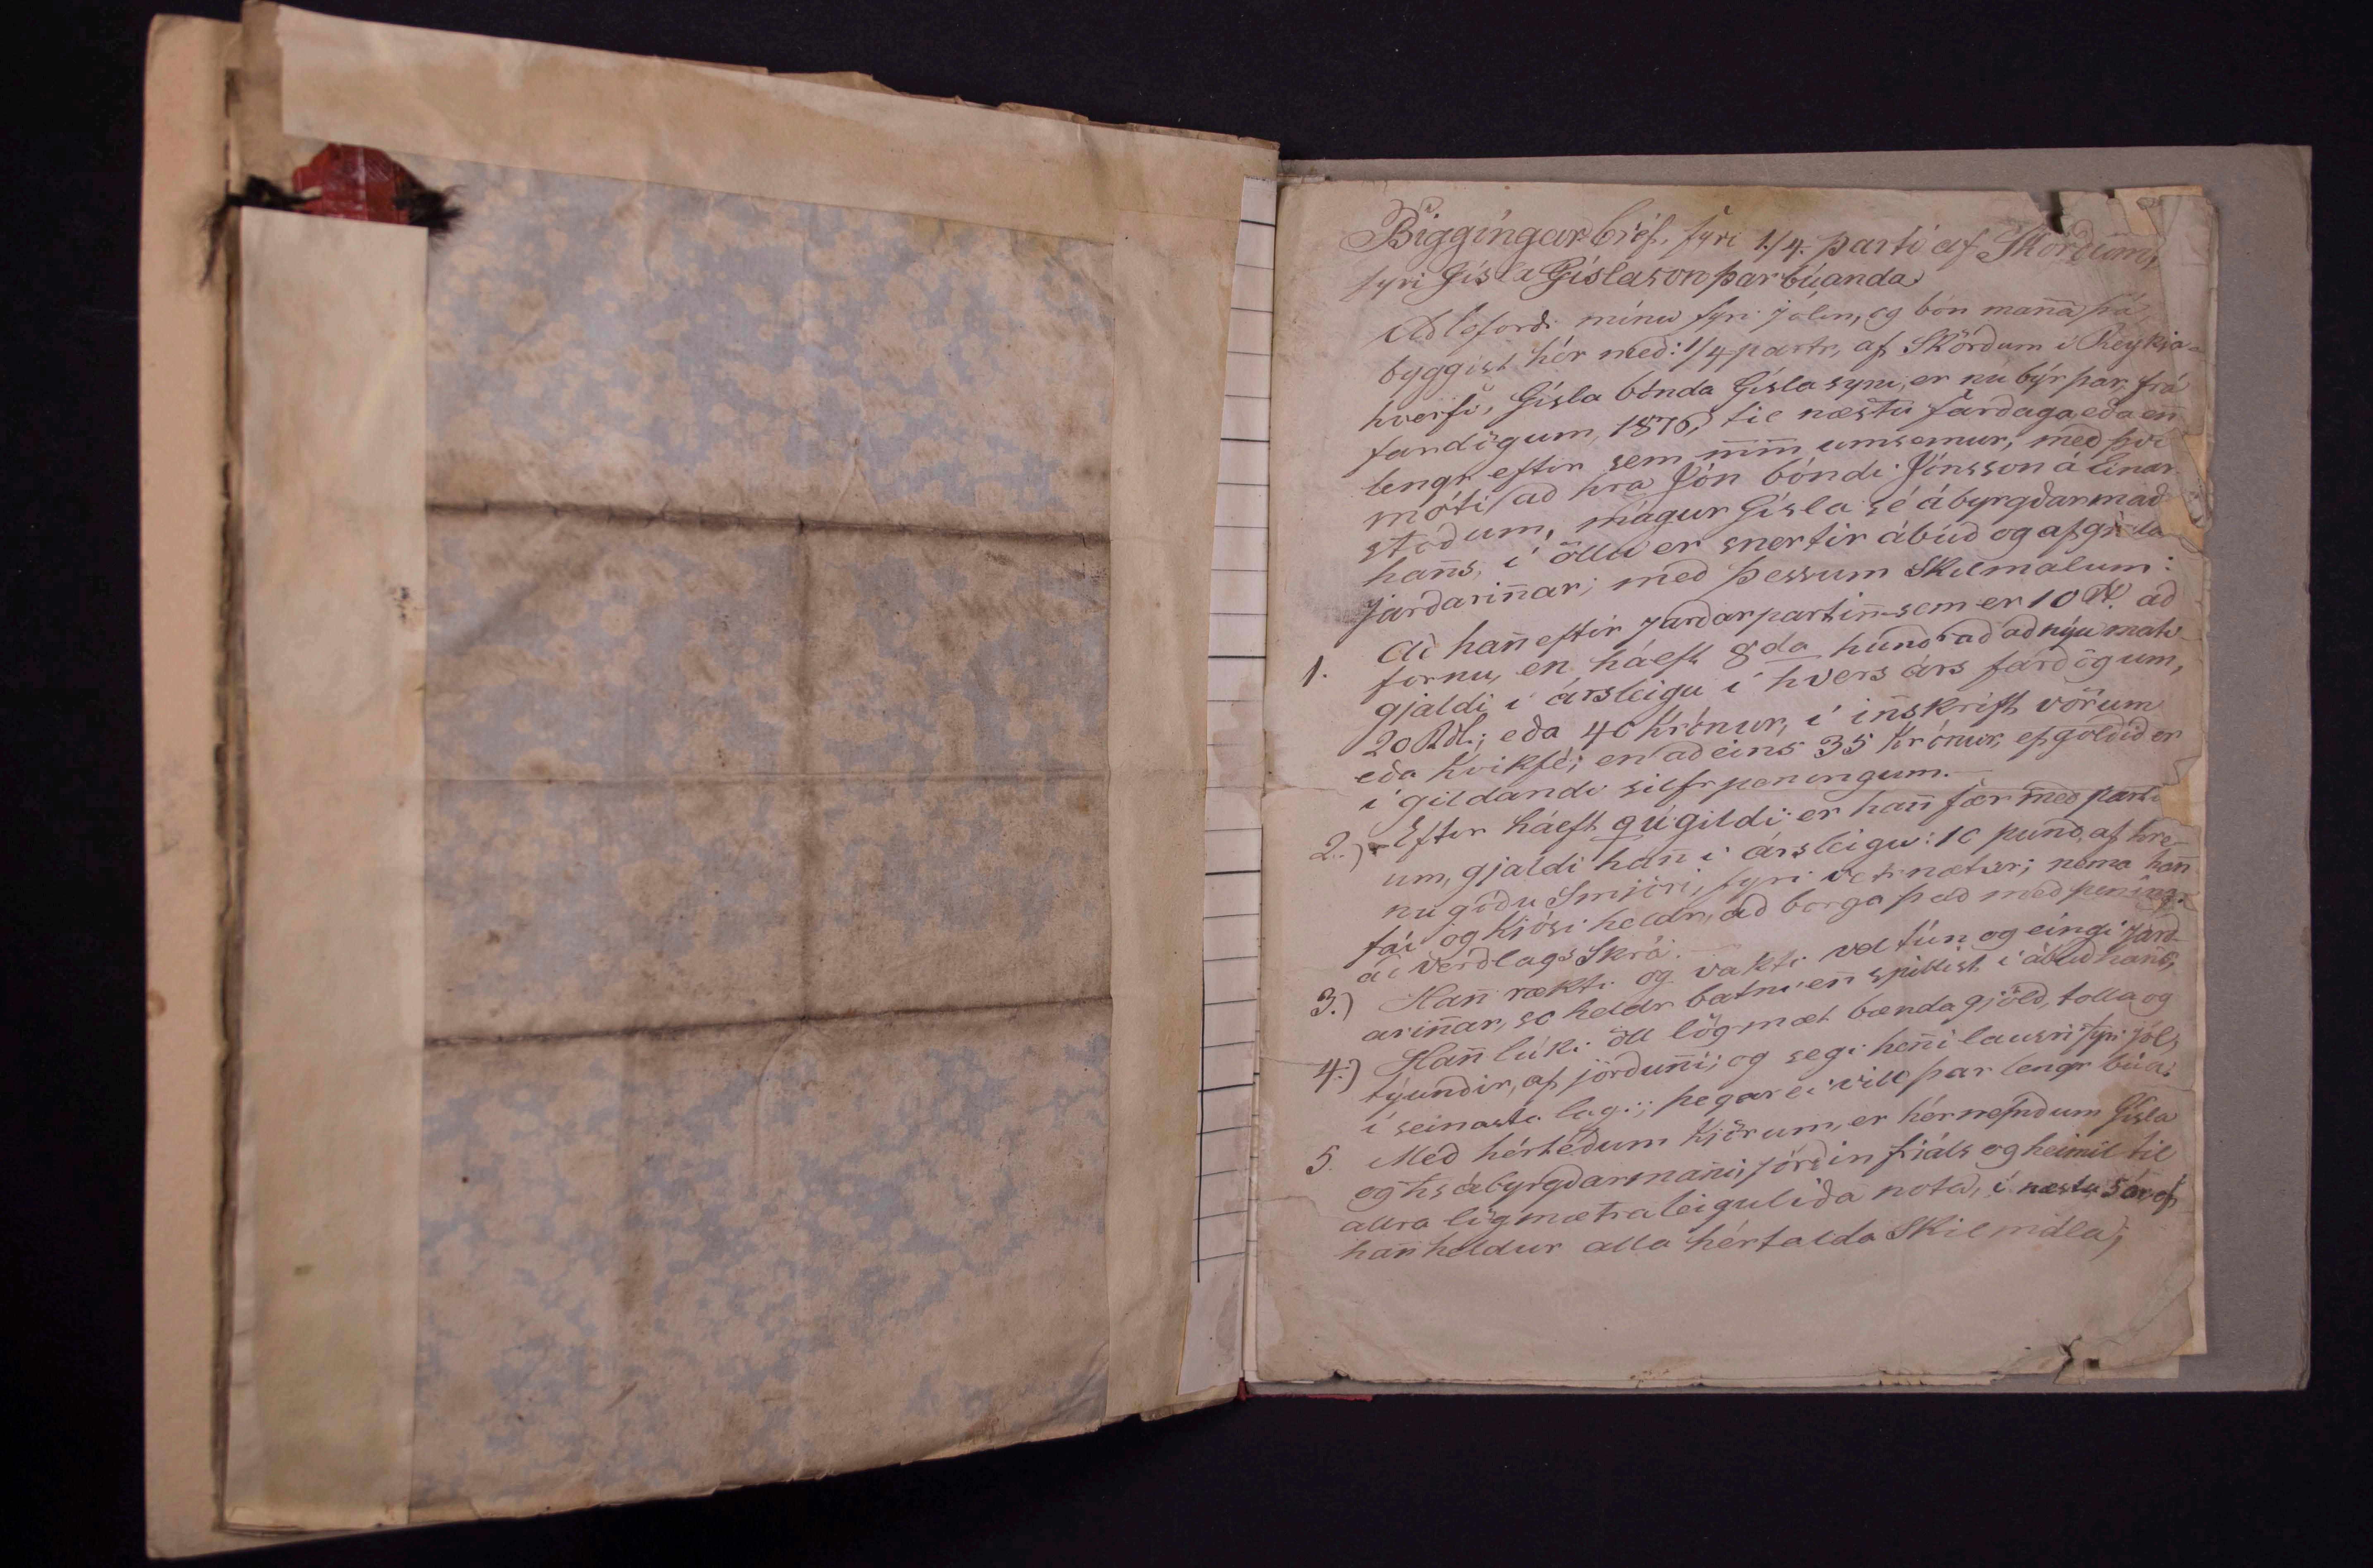 Biggíngar bréf, fyri 1/4. parti af Skörðum,
fyri Gísla Gíslason þar búanda
Að loforði mínu fyri jólin, og bón mañá þá
byggist hér með: 1/4 partr, af Skörðum í Reykja-
hverfi, Gísla bónda Gíslasyni, er nú býr þar, frá
fardögum, 1876, til næstu fardaga eða eñ
lengr eftir sem m̅m̅ umsemur; með því
móti að hra Jón bóndi Jónsson á Einar
stöðum, mágur Gísla sé ábyrgðarmað
hañs, í öllu er snertir ábúð og afgjalda
jarðariñar; með þessum Skilmálum:
1. Að hañ eftir jarðarpartiñ sem er 10 # að
fornu, en hálft 8da hundrað að nýu mati
gjaldi í ársleigu í hvers árs fardögum,
20 Rdl; eða 40 Krónur, í iñskrift vörum
eða kvikfé; en aðeins 35 Krónur, ef goldið er
í gildandi silfrpeningum.
2.) Eftir hálft qúgildi er hañ fær með parti
um, gjaldi hañ í ársleigu: 10 pund, af hre-
nu góðu Smjöri, fyri vetrnætur; nema hañ
fái og kjósi heldr, að borga það með peníng
ái verðlags Skrá.
3.) Hañ rækti og vakti vel tún og eingi jarð-
ariñar, so heldr batni eñ spillist í ábúð hañs,
4.) Hañ lúki öll lögmæt bændagjöld, tolla og
týundir, af jörðuñi; og segi heñi lausri fyri jól,
í seinasta lagi; þegar ei vill þar lengr búa;
5. Með hértéðum kjörum, er hérnefndum Gísla
og hs ábyrgðarmañi jörðin frjáls og heimil til
allra lögmætra leiguliða nota, í næstu 5 ár ef
hañ heldur alla hértalda Skilmála;